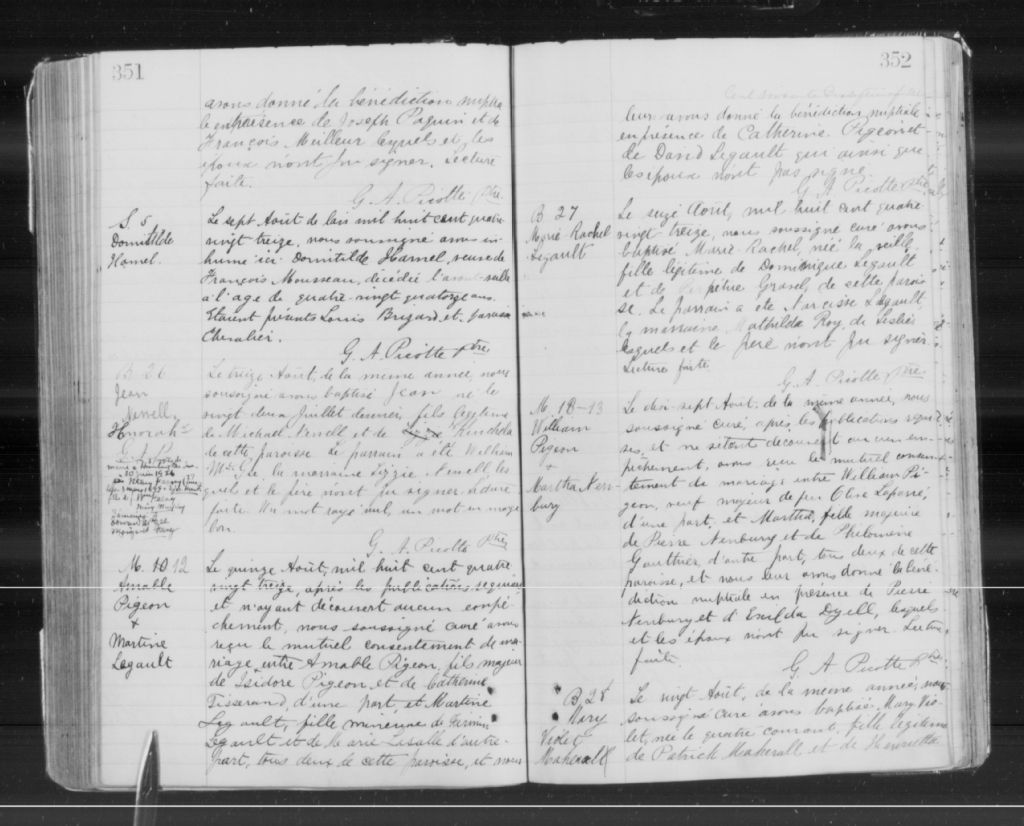 351
avons donné la bénédiction nuptia
le en présence de Joseph Paquin et de
François Meilleur lesquels et les
époux n'ont pu signer. Lecture
faite.
G. A. Picotte ptre
S. 5
Domitilde
Hamel.
Le sept Août de lais mil huit cent quatre
vingt treize, nous soussigné avons in
humé ici Domitilde Hamel, veuve de
François Mousseau, décédée l'avant-veille
à l'age de quatre-vingt quatorze ans.
Etaient présents Louis Brizard et
Chevalier.
G. A. Picotte ptre
B 26
Jean
Newell
Honorah
Le treize Août, de la meme année, nous
soussigné avons baptisé Jean né le
vingt deux Juillet dernier, fils légitime
de Michael Newell et de Kinchola
de cette paroisse. Le parrain a été William
la marraine Lizzie Newell les
quel et le père n'ont pu signer. Lecture
faite. Un mot rayé nul, un mot en marge
bon.
G. A. Picotte ptre
M. 10 12
Amable
Pigeon
+
Martine
Legault
Le quinze Août, mil huit cent quatre
vingt treize, après les publications requises
et n'ayant découvert aucun empê
chement, nous soussigné curé avons
reçu le mutuel consentement de ma
riage entre Amable Pigeon, fils majeur
de Isidore Pigeon et de Catherine
Tisserand, d'une part, et Martine
Legault, fille mineure de Firmin
Legault et de Marie Lasalle d'autre
part, tous deux de cette paroisse, et nous
352
leur avons donné la bénédiction nuptiale
en présence de Catherine Pigeon et
de David Legault qui ainsi que
les époux n'ont pas signé
G. A. Picotte ptre
B 27
Marie Rachel
Legault
Le seize Août, mil huit cent quatre
vingt treize, nous soussigné curé avons
baptisé Marie Rachel, née la veille,
fille légitime de Dominique Legault
et de Perpétue Gravel, de cette parois
se. Le parrain a été Narcisse Legault
la marraine Mathilde Roy, de Leslie
lesquels et le père n'ont pu signer.
Lecture faite.
G. A. Picotte ptre
M. 18-13
William
Pigeon
+
Martha Nen-
bury
Le dix-sept Août, de la même année, nous
soussigné curé, après les publications requi
ses, et ne s'étant découvert aucun em
pêchement, avons reçu le mutuel consen
tement de mariage entre William Pi
geon, veuf majeur de feu Olive Laporte,
d'une part, et Martha, fille majeure
de Pierre Nenbury et de Philomène
Gauthier d'autre part, tous deux de cette
paroisse, et nous leur avons donné la béné
diction nuptiale en présence de Pierre
Nenbury et d'Exilda Dyell, lesquels
et les époux n'ont pu signer. Lecture
faite.
G. A. Picotte ptre
B. 28
Mary
Violet
Makerall
Le vingt Août, de la meme année, nous
soussigné curé avons baptisé Mary Vio
let, née le quatre courant, fille légitime
de Patrick Makerall et de Henrietta